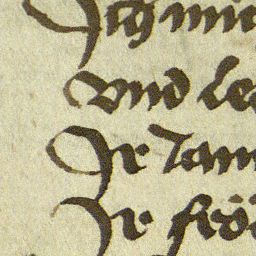 Ich mu
vnd le
Ir lan
Ir frö